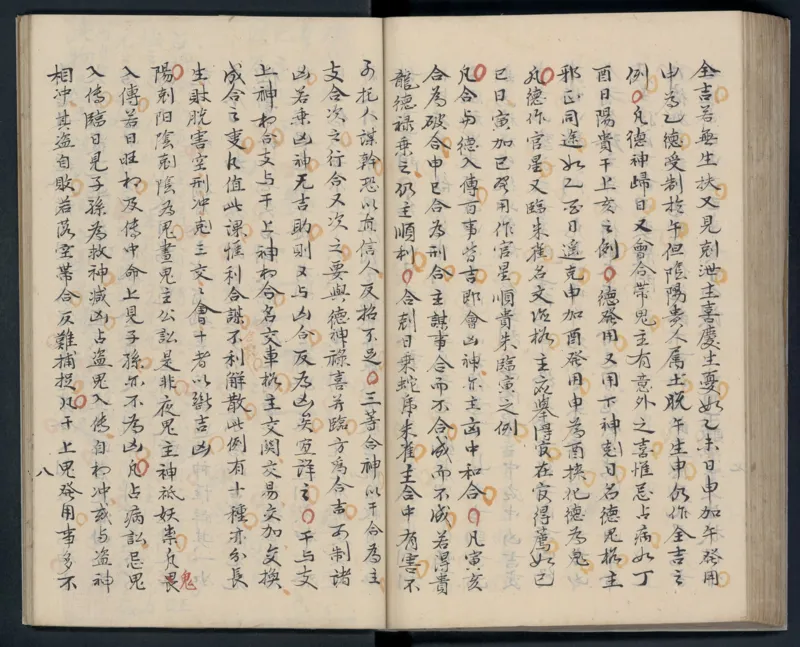 全吉若無生扶又見剋泄主喜慶生憂如乙未日申加午發用
申為乙德受制於午但陰陽貴人屬土脫午生申仍作全吉之
例凡德神歸日又會合帶鬼主有意外之喜惟忌占病如丁
酉日陽貴干上亥之例德發用又用下神尅日名德鬼格主
邪正同途如乙酉日遙克申加酉發用申為酉挾化德為鬼
凡德作官星又臨朱雀名文德格主應舉得官在官得薦如己
巳日寅加巳發用作官星順貴朱臨寅之例
凡合与德入傳百事皆吉即會凶神亦主凶中和合凡寅亥
合為破合申巳合為刑合主謀事合而不合成而不成若得貴
龍德祿乗之仍主順利合剋日乗蛇虎朱雀主合中有害不
可托人謀幹恐以直信人反招不足三等合神以干合為主
支合次之行合又次之要與德神祿喜并臨方為合吉可制諸
凶若乗凶神无吉助則又与凶合反為凶矣宜詳之干与支
上神相合支与干上神相合名交車格主交関交易交加交換
成合之事凡值此課惟利合謀不利解散此例有十種亦分長
生財脫害空刑冲尅三交三會十者以斷吉凶
陽剋阳陰剋陰為鬼晝鬼主公訟是非夜鬼主神祗妖祟凡畏鬼
入傳若日旺相及傳中命上見子孫亦不為凶凡占病訟忌鬼
入傳臨日見子孫為救神減凶占盗鬼入傳自相冲或与盗神
相冲其盗自敗若落空帶合反難捕捉凡干上鬼發用事多不
八